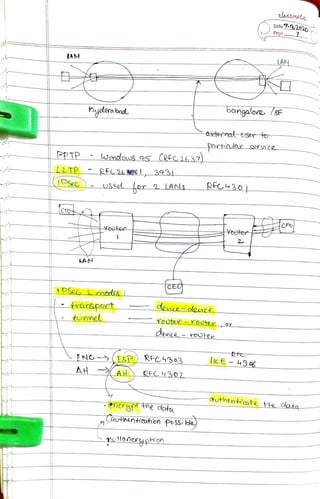 classmate
Date 7.9.2020
Page 7
LAN
LAN
Hyderabad
bangalore / SF
external user to
particular service
PPTP - Windows 95 (RFC 2637)
L2TP - RFC 2661, 3931
IPSec - used for 2 LANs RFC 4301
CTO
router
1
router
2
CFO
LAN
CEO
IPSec 2 modes:
- transport — device-device
- tunnel — router-router, or
device-router
ENC → ESP RFC 4303
RFC
IKE - 4306
AH → AH RFC 4302
encrypt the data
authenticate the data
(authentication possible)
null encryption